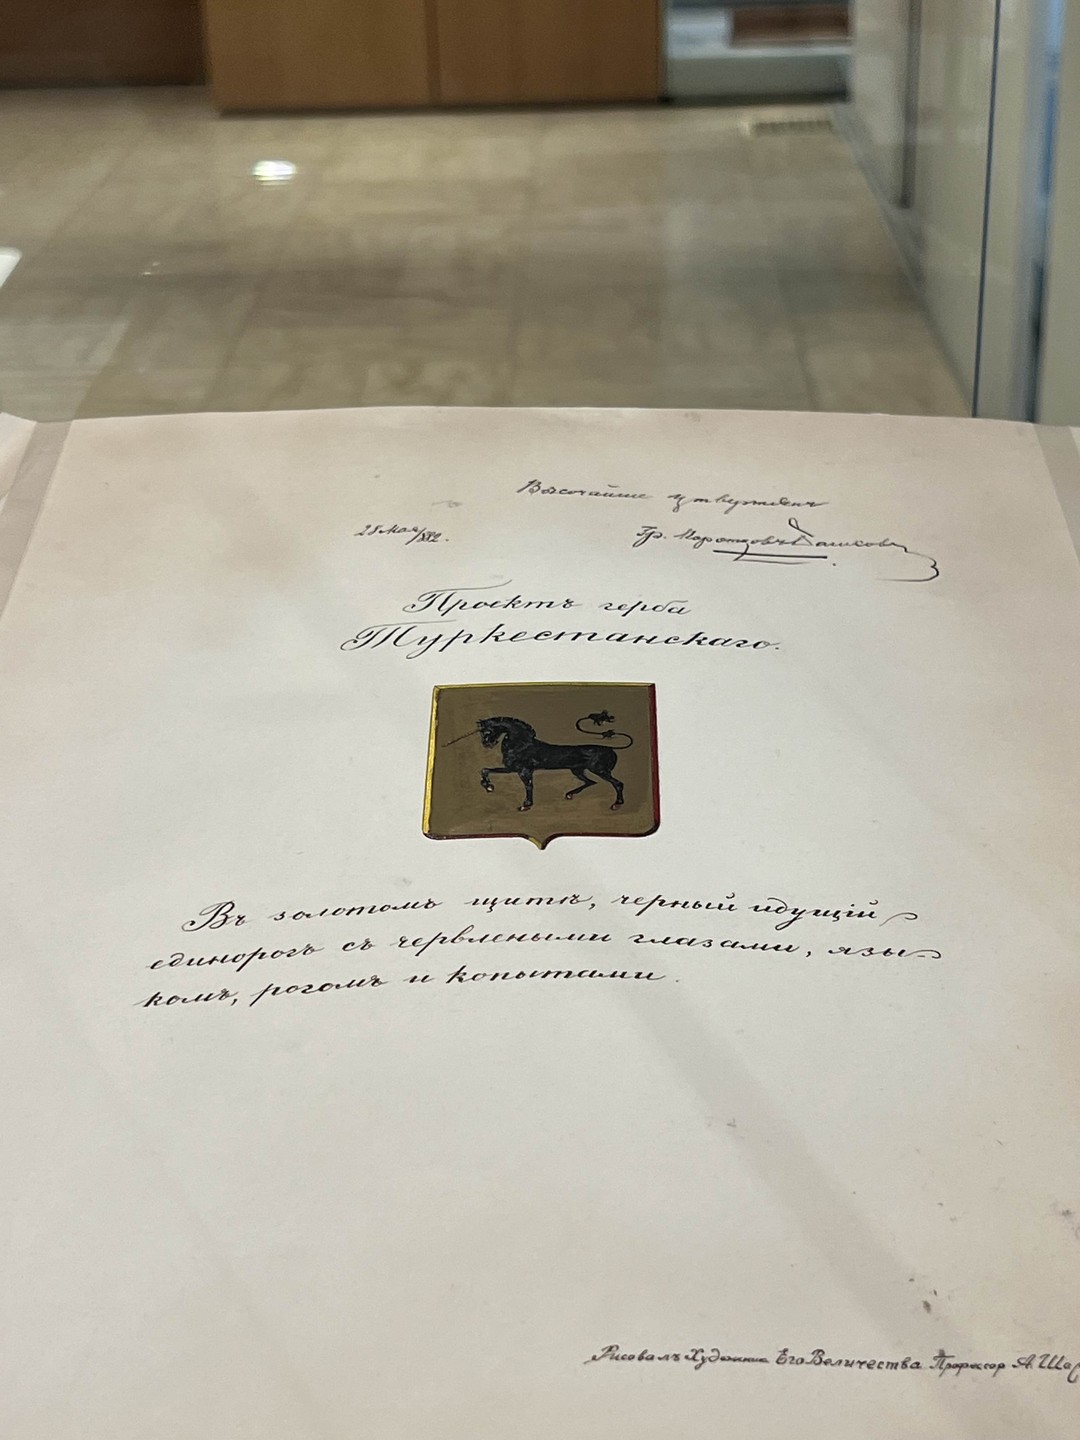 Высочайше утвержденъ
28 Мая/882.
Гр. Воронцовъ Дашковъ
Проектъ герба
Туркестанскаго.
Въ золотомъ щитѣ, черный идущій
единорогъ съ червлеными глазами, язы-
комъ, рогомъ и копытами.
Рисовалъ Художник Его Величества Профессор А. Ша